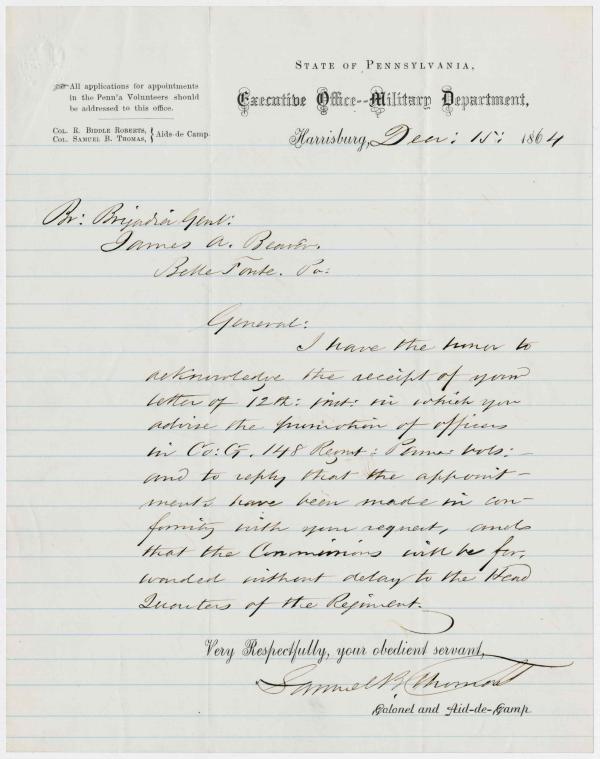 STATE OF PENNSYLVANIA,
Executive Office--Military Department,
Harrisburg, Decr: 15: 1864
All applications for appointments
in the Penn'a Volunteers should
be addressed to this office.
COL. R. BIDDLE ROBERTS,
COL. SAMUEL B. THOMAS,
} Aids-de Camp.
Br: Brigadier Genl:
James A. Beaver.
Belle Fonte. Pa:
General:
I have the honor to
acknowledge the receipt of your
letter of 12th: inst: in which you
advise the promotion of officers
in Co: G. 148 Regmt: Penna: Vols:
and to reply that the appoint-
ments have been made in con-
formity with your request, and
that the Commissions will be for-
warded without delay to the Head
Quarters of the Regiment.
Very Respectfully, your obedient servant,
Samuel B. Thomas
Colonel and Aid-de-Camp